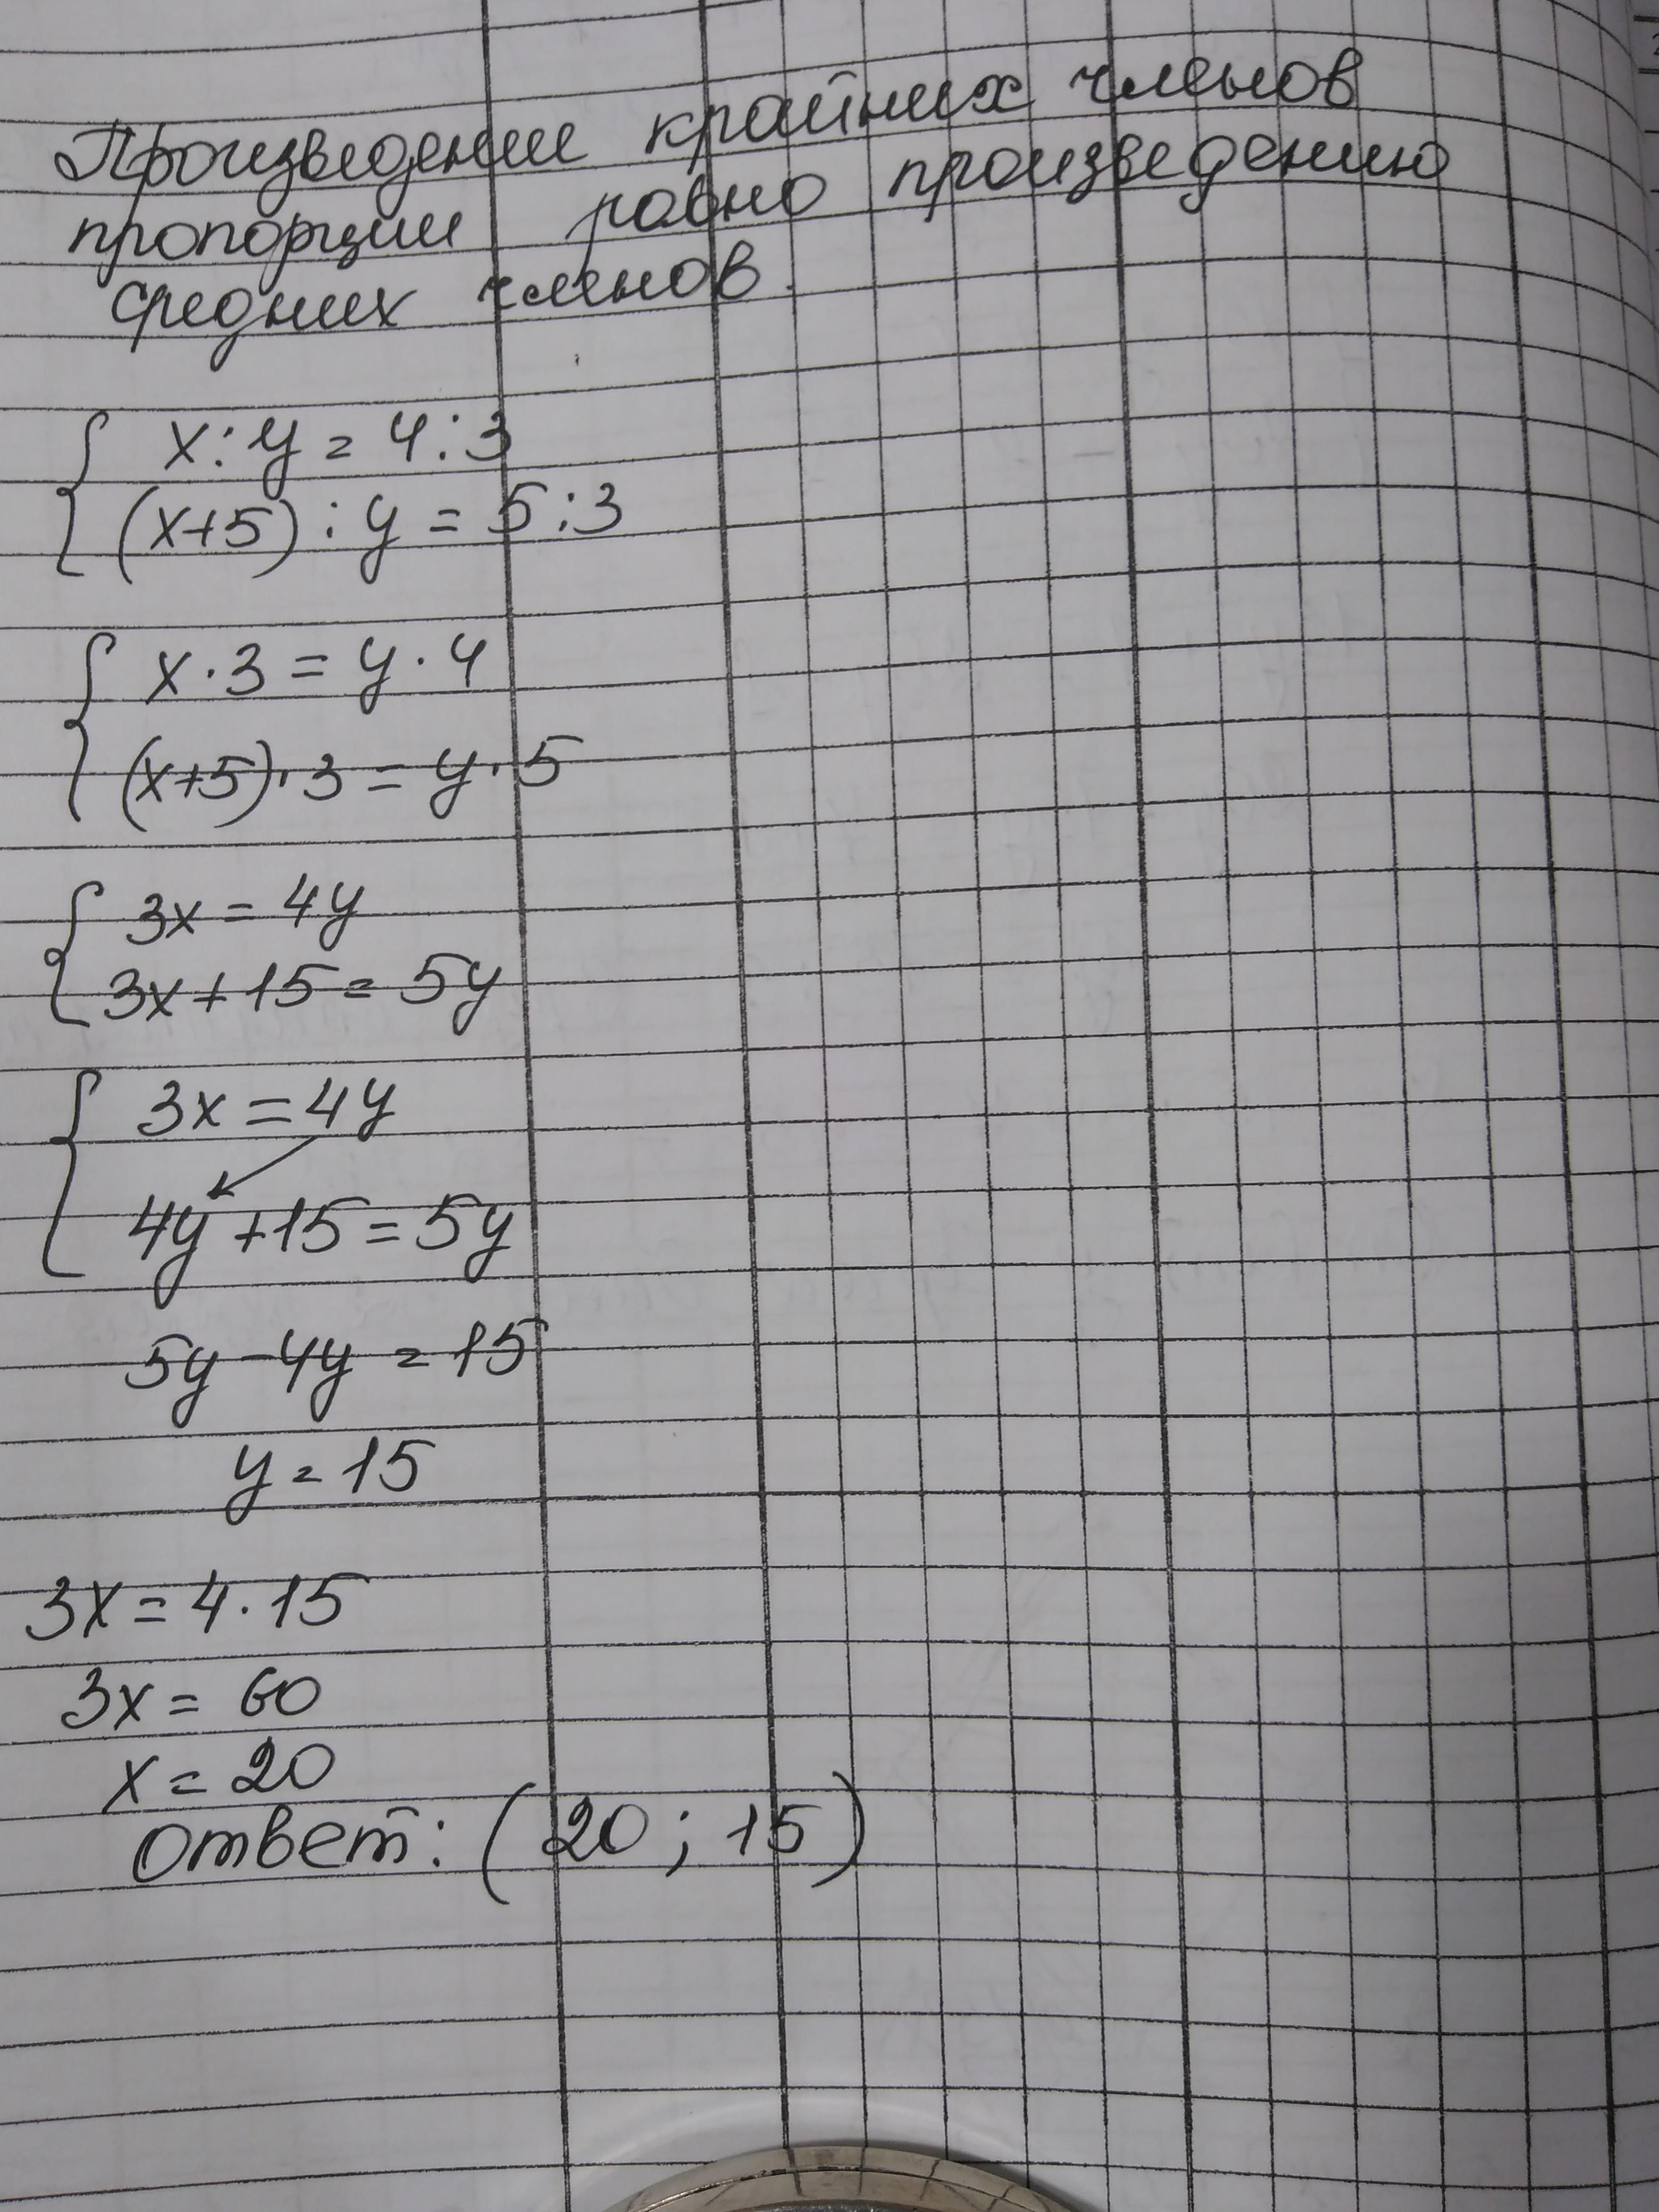 Произведение крайних членов
пропорции равно произведению
средних членов.
x : y = 4 : 3
(x+5) : y = 5 : 3
x · 3 = y · 4
(x+5) · 3 = y · 5
3x = 4y
3x + 15 = 5y
3x = 4y
4y + 15 = 5y
5y - 4y = 15
y = 15
3x = 4 · 15
3x = 60
x = 20
Ответ: (20 ; 15)